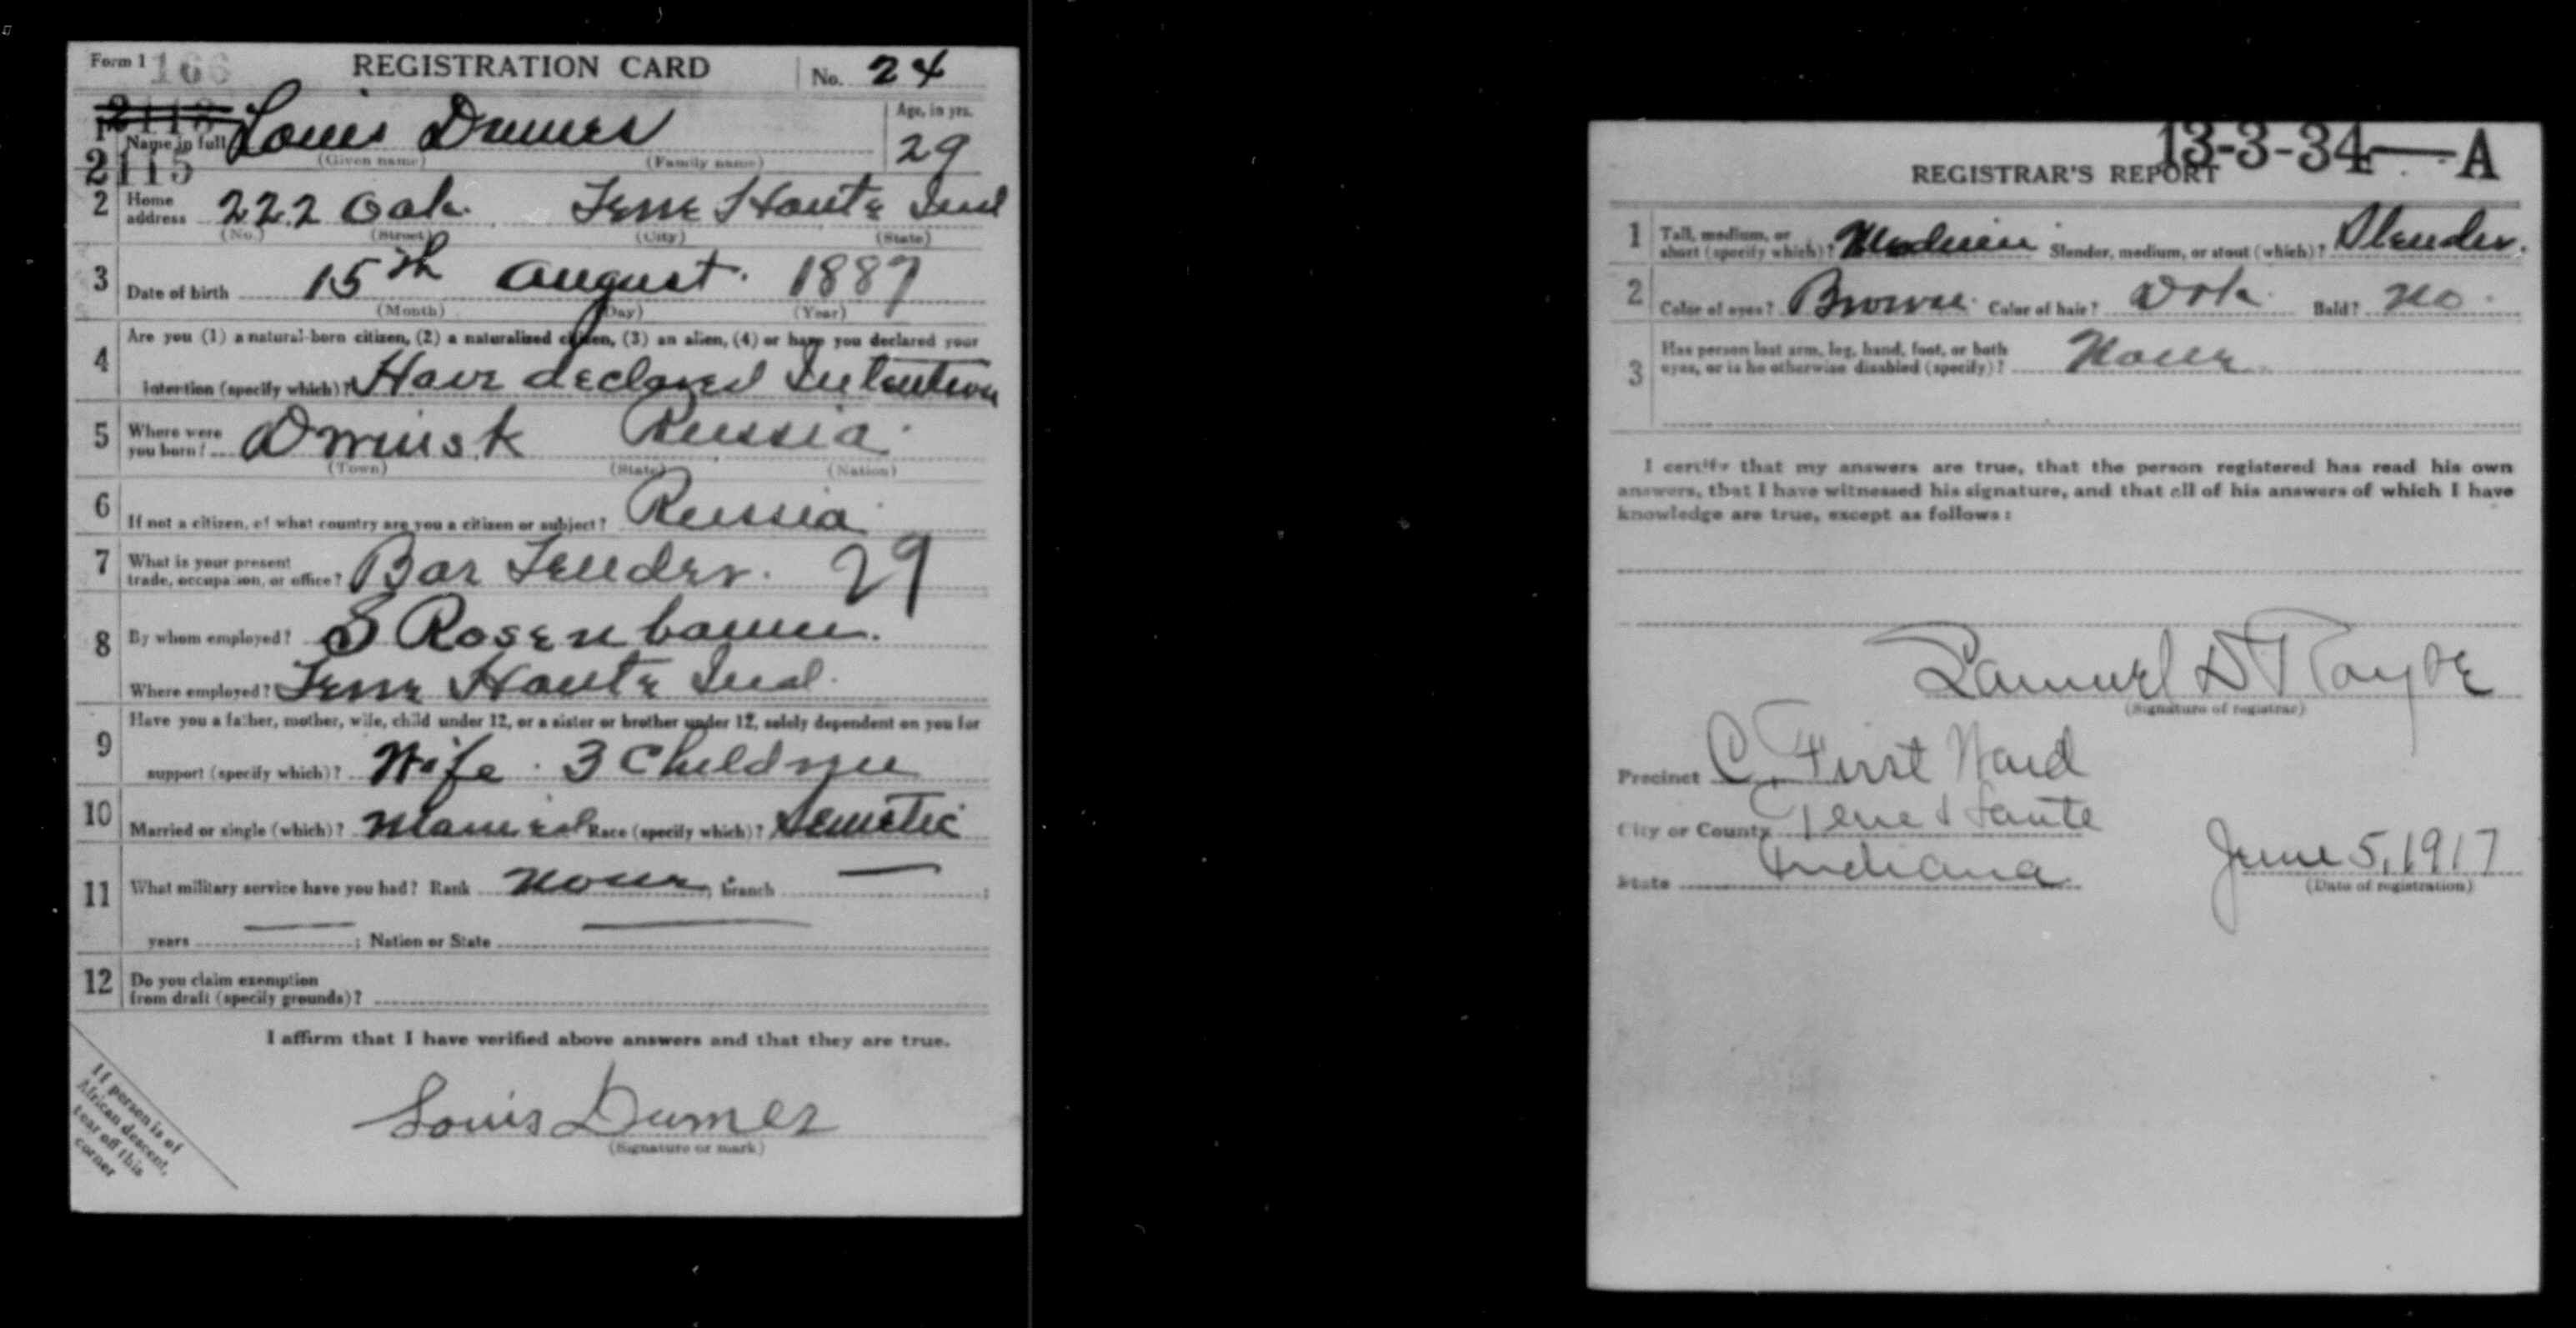 Form 1 166 REGISTRATION CARD No. 24
2113
1 Name in full Louis Dumes Age, in yrs.
(Given name) (Family name) 29
2115
2 Home address 222 Oak Terre Haute Ind
(No.) (Street) (City) (State)
3 Date of birth 15th August. 1887
(Month) (Day) (Year)
4 Are you (1) a natural-born citizen, (2) a naturalized citizen, (3) an alien, (4) or have you declared your
intention (specify which)? Have declared Intention
5 Where were you born? Dwinsk Russia
(Town) (State) (Nation)
6 If not a citizen, of what country are you a citizen or subject? Russia
7 What is your present trade, occupation, or office? Bar Tender. 29
8 By whom employed? S Rosenbaum.
Where employed? Terre Haute Ind.
9 Have you a father, mother, wife, child under 12, or a sister or brother under 12, solely dependent on you for
support (specify which)? Wife. 3 Children
10 Married or single (which)? Married Race (specify which)? Semetic
11 What military service have you had? Rank None; branch —;
years —; Nation or State —
12 Do you claim exemption
from draft (specify grounds)?
I affirm that I have verified above answers and that they are true.
Louis Dumes
(Signature or mark)
If person is of
African descent,
tear off this
corner
13-3-34—A
REGISTRAR'S REPORT
1 Tall, medium, or short (specify which)? Medium Slender, medium, or stout (which)? Slender.
2 Color of eyes? Brown Color of hair? Drk. Bald? No.
3 Has person lost arm, leg, hand, foot, or both
eyes, or is he otherwise disabled (specify)? None
I certify that my answers are true, that the person registered has read his own
answers, that I have witnessed his signature, and that all of his answers of which I have
knowledge are true, except as follows:
Samuel D Royse
(Signature of registrar)
Precinct C. First Ward
City or County Terre Haute
State Indiana June 5, 1917
(Date of registration)